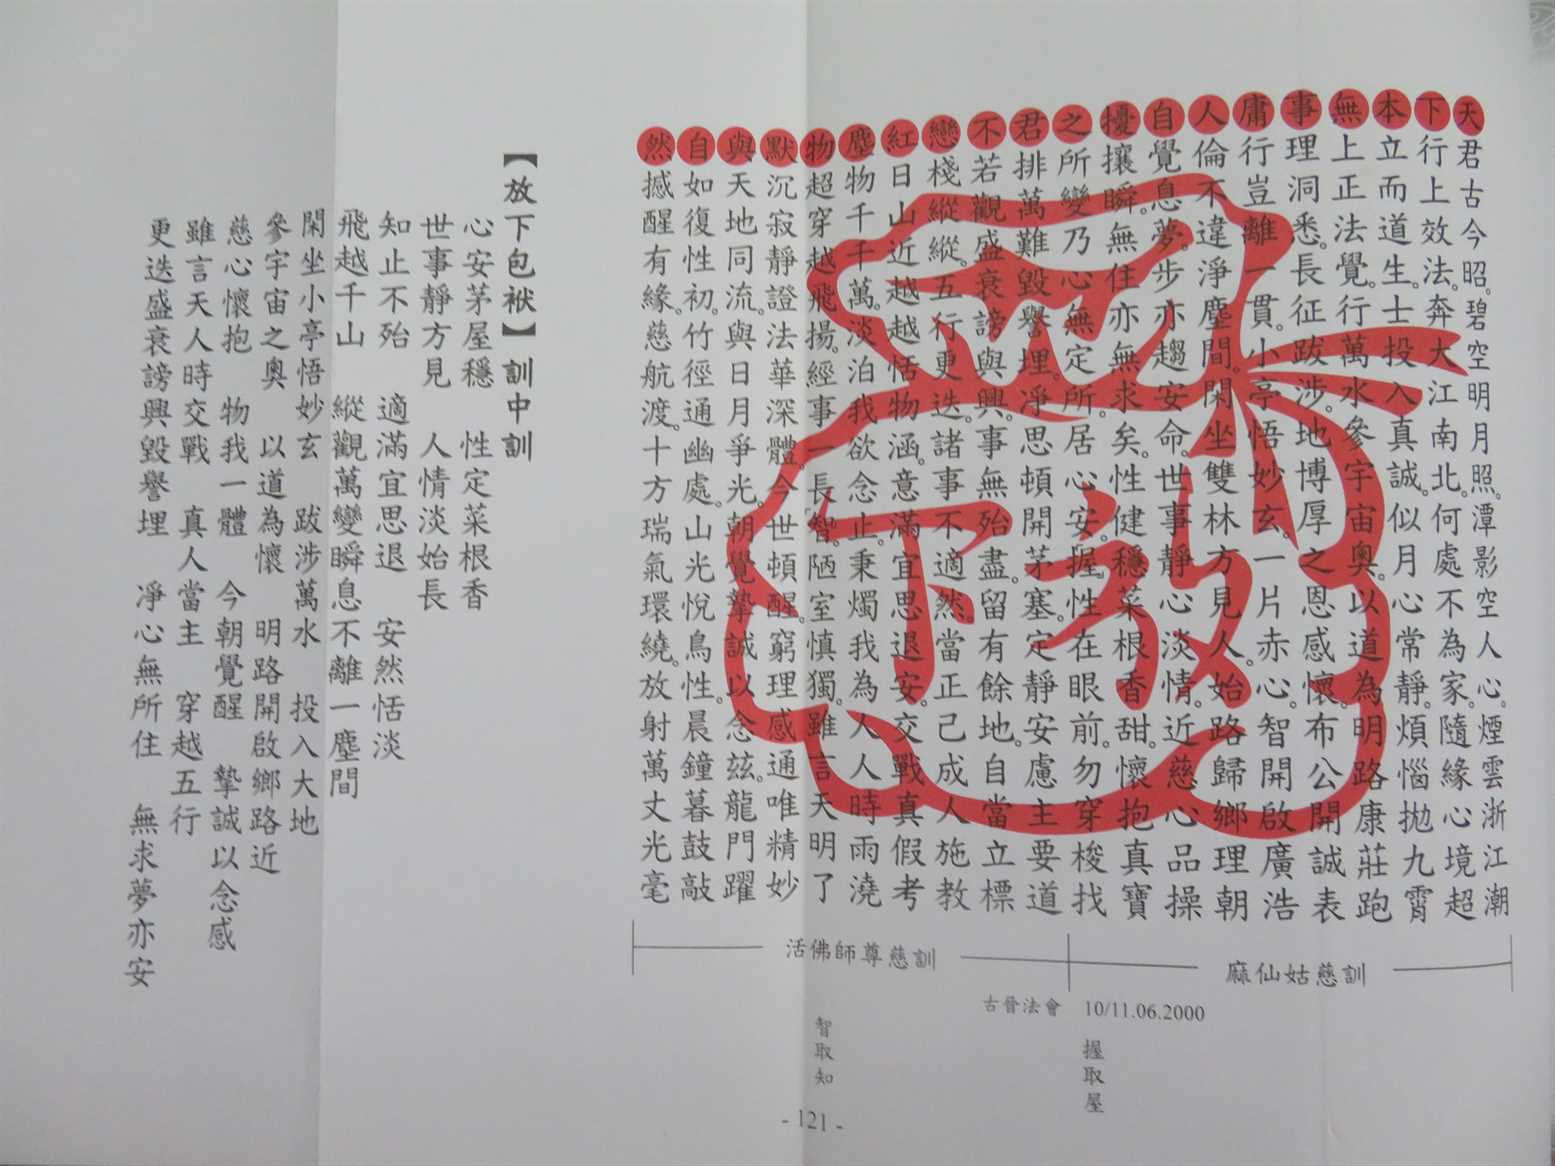 天君古今昭。碧空明月照。潭影空人心。煙雲浙江潮
下行上效法。奔大江南北。何處不為家。隨緣心境超
本立而道生。士投入真誠。似月心常靜。煩惱拋九霄
無上正法覺。行萬水參宇宙奧。以道為明路康莊跑
事理洞悉。長征跋涉。地博厚之恩感懷。布公開誠表
庸行豈離一貫。小亭悟妙玄。一片赤心。智開啟廣浩
人倫不違淨塵間。閑坐雙林方見人。始路歸鄉理朝
自覺息夢。步亦趨安命。世事靜心淡情。近慈心品操
擾攘瞬。無住亦無求矣。性健穩菜根香甜。懷抱真寶
之所變乃心無定所。居心安。握性在眼前。勿穿梭找
君排萬難毀譽埋。凈思頓開茅塞。定靜安慮主要道
不若觀盛衰謗與興。事無殆盡。留有餘地。自當立標
戀棧縱縱。五行更迭。諸事不適然。當正己成人施教
紅日山近越越恬物涵。意滿宜思退安。交戰真假考
塵物千千萬。淡泊我欲念止。秉燭我為人人時雨澆
物超穿越飛揚。經事一長智。陋室慎獨。雖言天明了
默沉寂靜證法華深體。今世頓醒。窮理感通唯精妙
與天地同流。與日月爭光。朝覺摯誠以念茲。龍門躍
自如復性初。竹徑通幽處。山光悅鳥性。晨鐘暮鼓敲
然撼醒有緣。慈航渡。十方瑞氣環繞。放射萬丈光毫
放下
麻仙姑慈訓
活佛師尊慈訓
古晉法會 10/11.06.2000
握取屋
智取知
【放下包袱】訓中訓
心安茅屋穩 性定菜根香
世事靜方見 人情淡始長
知止不殆 適滿宜思退 安然恬淡
飛越千山 縱觀萬變瞬息不離一塵間
閑坐小亭悟妙玄 跋涉萬水 投入大地
參宇宙之奧 以道為懷 明路開啟鄉路近
慈心懷抱 物我一體 今朝覺醒 摯誠以念感
雖言天人時交戰 真人當主 穿越五行
更迭盛衰謗興毀譽埋 凈心無所住 無求夢亦安
- 121 -